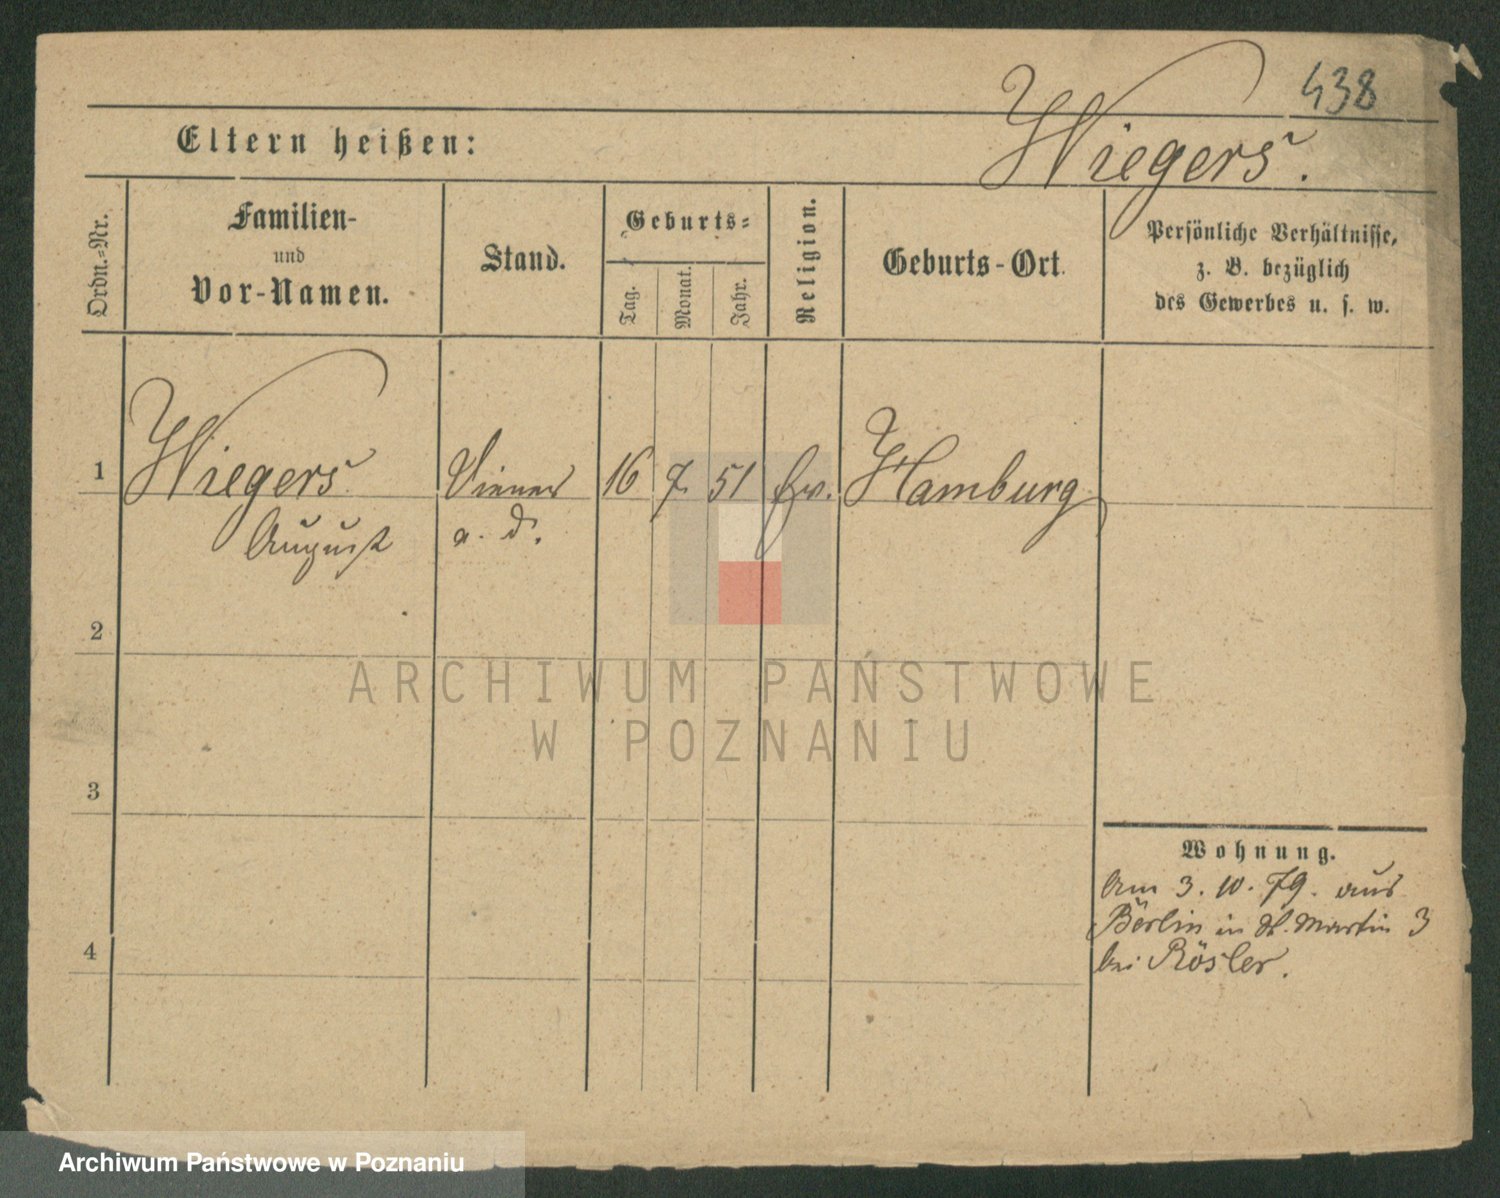 438
Wiegers.
Eltern heißen:
Ordn.-Nr.
Familien-
und
Vor-Namen.
Stand.
Geburts-
Tag.
Monat.
Jahr.
Religion.
Geburts-Ort.
Persönliche Verhältnisse,
z. B. bezüglich
des Gewerbes u. s. w.
1 Wiegers 16 7. 51 Ev. Hamburg
August
2
3
4
Wohnung.
Am 3. 10. 79. aus
Berlin in St. Martin 3
bei Rösler.
ARCHIWUM PAŃSTWOWE
W POZNANIU
Archiwum Państwowe w Poznaniu